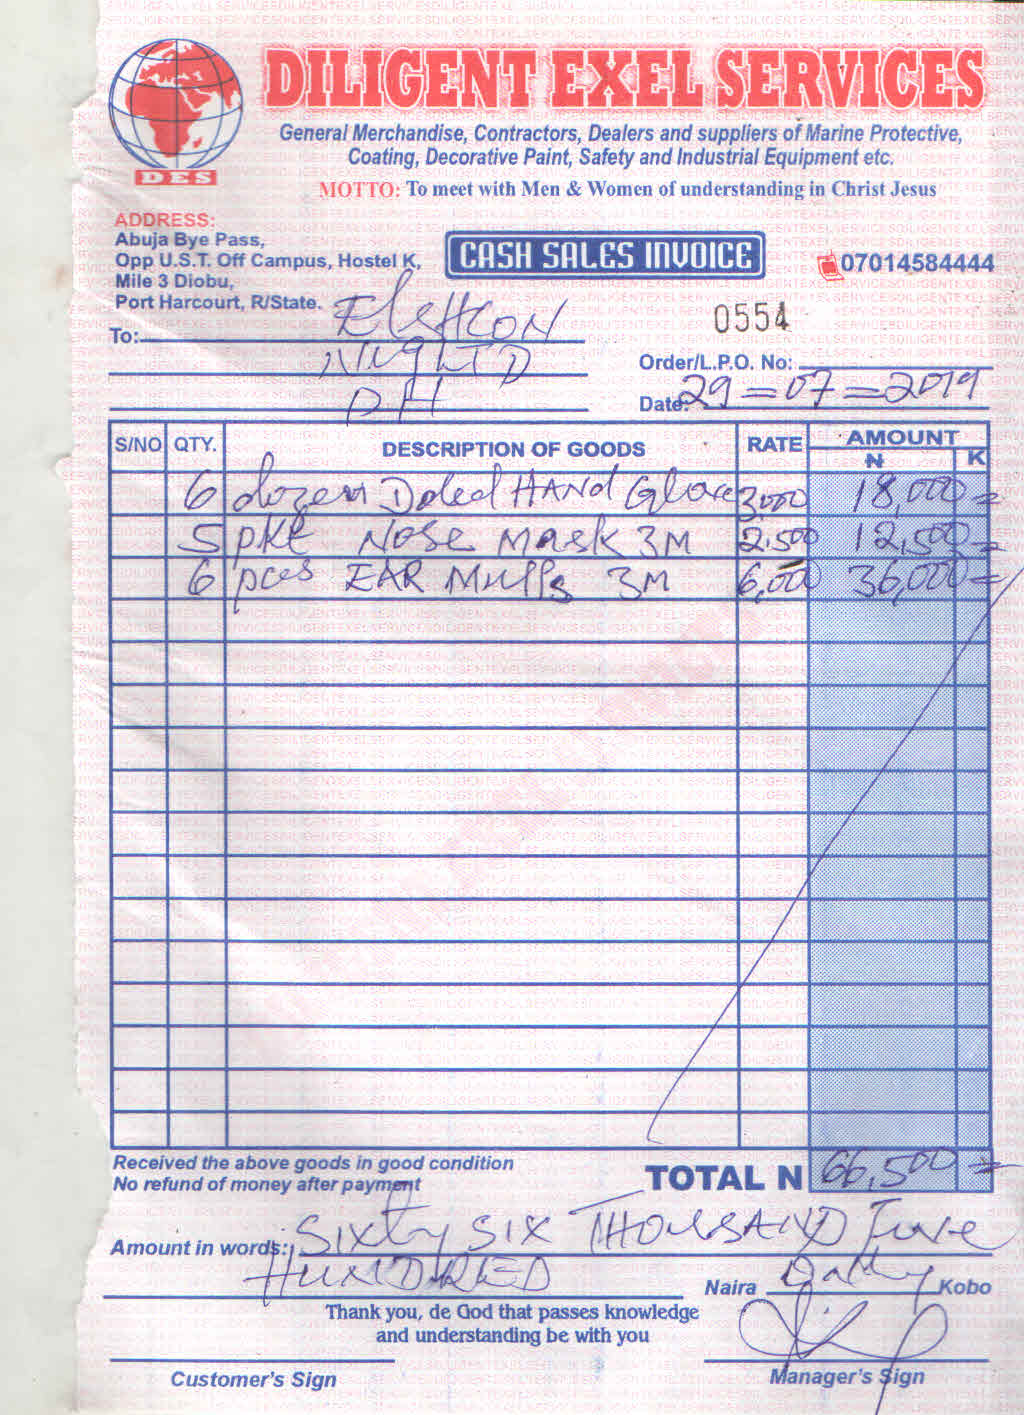 DILIGENT EXEL SERVICES
General Merchandise, Contractors, Dealers and suppliers of Marine Protective,
Coating, Decorative Paint, Safety and Industrial Equipment etc.
DES
MOTTO: To meet with Men & Women of understanding in Christ Jesus
ADDRESS:
Abuja Bye Pass,
Opp U.S.T. Off Campus, Hostel K,
Mile 3 Diobu,
Port Harcourt, R/State.
CASH SALES INVOICE
07014584444
0554
To:
NIG LTD
PH
Order/L.P.O. No:
Date: 29=07=2019
S/NO QTY. DESCRIPTION OF GOODS RATE AMOUNT
₦ K
6 dozen HAND Glove 3,000 18,000 =
5 pkt Nose Mask 3M 2,500 12,500 =
6 pcs EAR Muffs 3M 6,000 36,000 =
Received the above goods in good condition
No refund of money after payment
TOTAL N 66,500 =
Amount in words: SIXTY SIX THOUSAND Five
HUNDRED Naira Only Kobo
Thank you, de God that passes knowledge
and understanding be with you
Customer's Sign
Manager's Sign